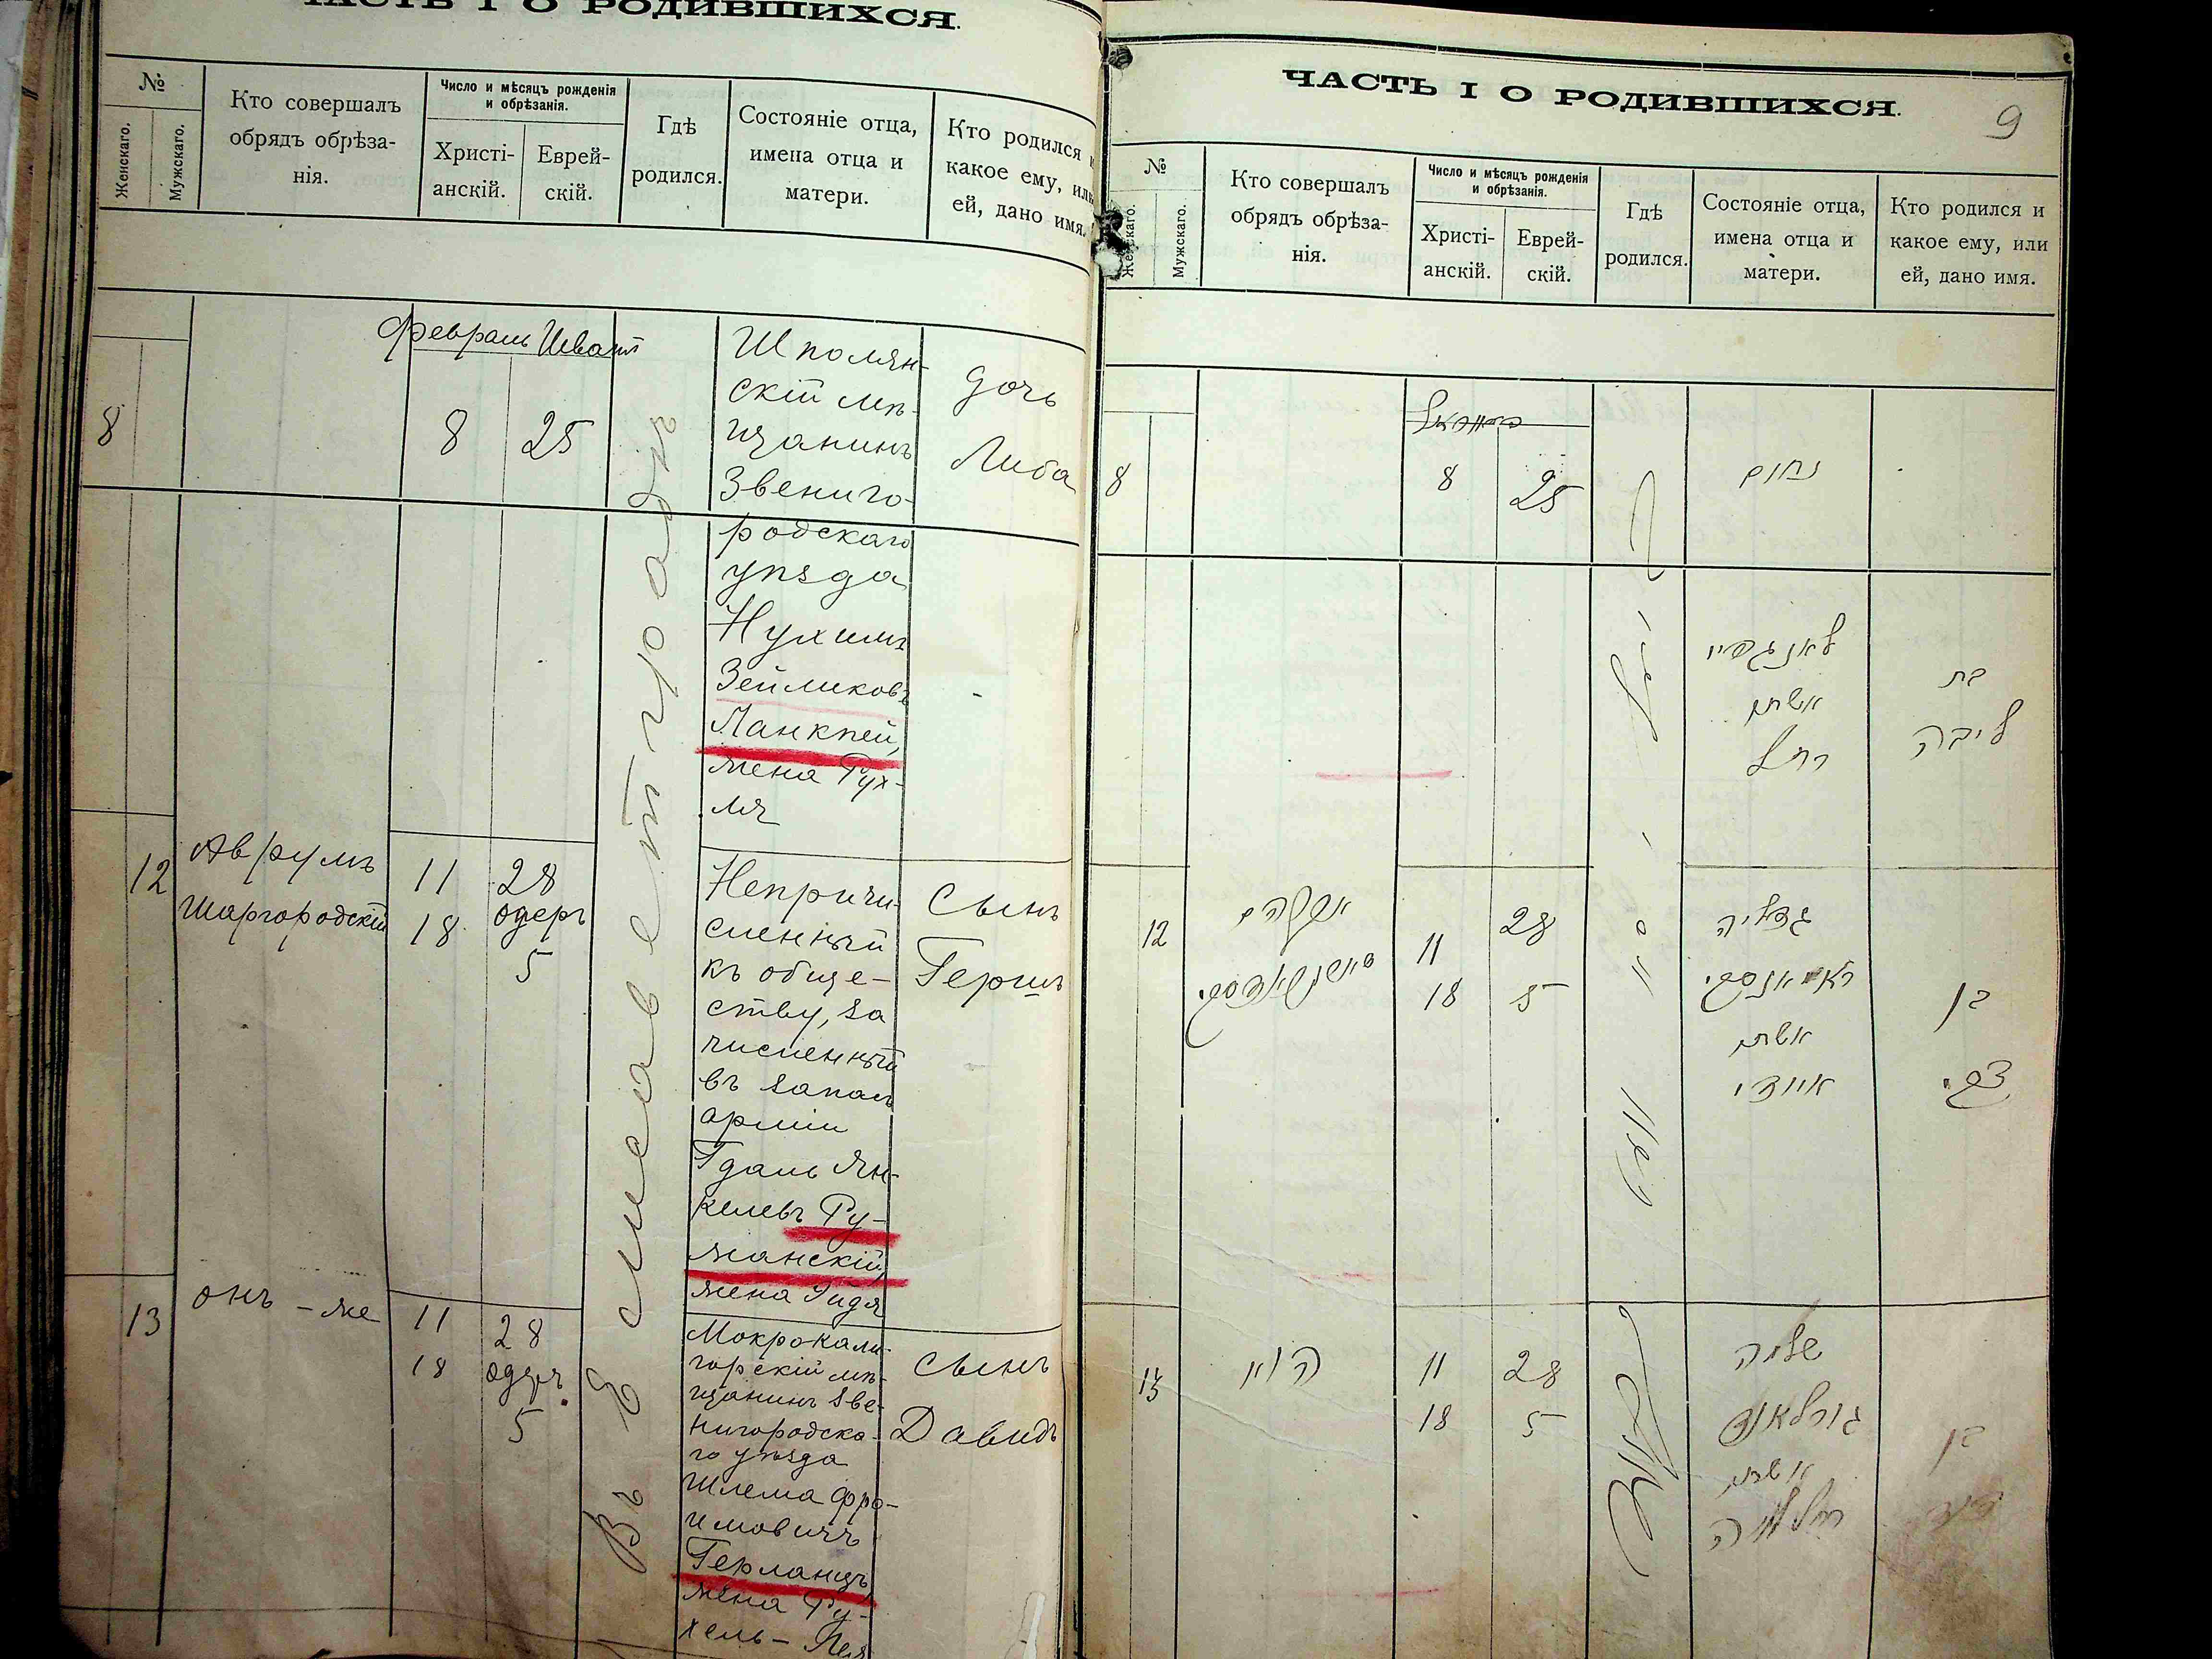 ЧАСТЬ I О РОДИВШИХСЯ.
№
Женскаго.
Мужскаго.
Кто совершалъ
обрядъ обрѣза-
нія.
Число и мѣсяцъ рожденія
и обрѣзанія.
Христі-
анскій.
Еврей-
скій.
Гдѣ
родился.
Состояніе отца,
имена отца и
матери.
Кто родился и
какое ему, или
ей, дано имя.
Февраль Шватъ
8
8
25
Шполян-
скій мѣ-
щанинъ
Звениго-
родскаго
уѣзда
Нухимъ
Зейликовъ
Ланкпей,
жена Рух-
ля
дочь
Либа
12
Аврумъ
Шаргородскій
11
18
28
одеръ
5
Непричи-
сленный
къ обще-
ству, за
численный
въ запасъ
арміи
Гдаль Ян-
келевъ Ру-
жанскій,
жена Эйдя
Сынъ
Гершъ
13
онъ-же
11
18
28
одеръ
5
Мокрокали-
горскій мѣ-
щанинъ Зве-
нигородска-
го уѣзда
Шлема Фро-
имовичъ
Герланцъ,
жена Ру-
хель-Лея
сынъ
Давидъ
Въ Елисаветградѣ
ЧАСТЬ I О РОДИВШИХСЯ.
9
№
Женскаго.
Мужскаго.
Кто совершалъ
обрядъ обрѣза-
нія.
Число и мѣсяцъ рожденія
и обрѣзанія.
Христі-
анскій.
Еврей-
скій.
Гдѣ
родился.
Состояніе отца,
имена отца и
матери.
Кто родился и
какое ему, или
ей, дано имя.
8
8
25
נחום
אשתו
רחל
בת
ליבה
12
אברהם
11
18
28
5
גדליה
אשתו
בן
צבי
13
הוא
11
18
28
5
שלמה
אשתו
בן